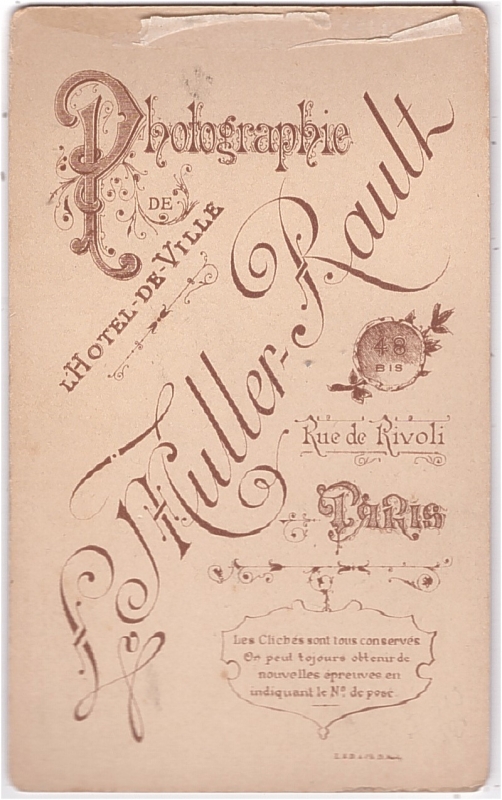 Photographie
DE
L'HOTEL-DE-VILLE
L. Muller-Rault
48
BIS
Rue de Rivoli
PARIS
Les Clichés sont tous conservés
On peut tojours obtenir de
nouvelles épreuves en
indiquant le Nº de pose